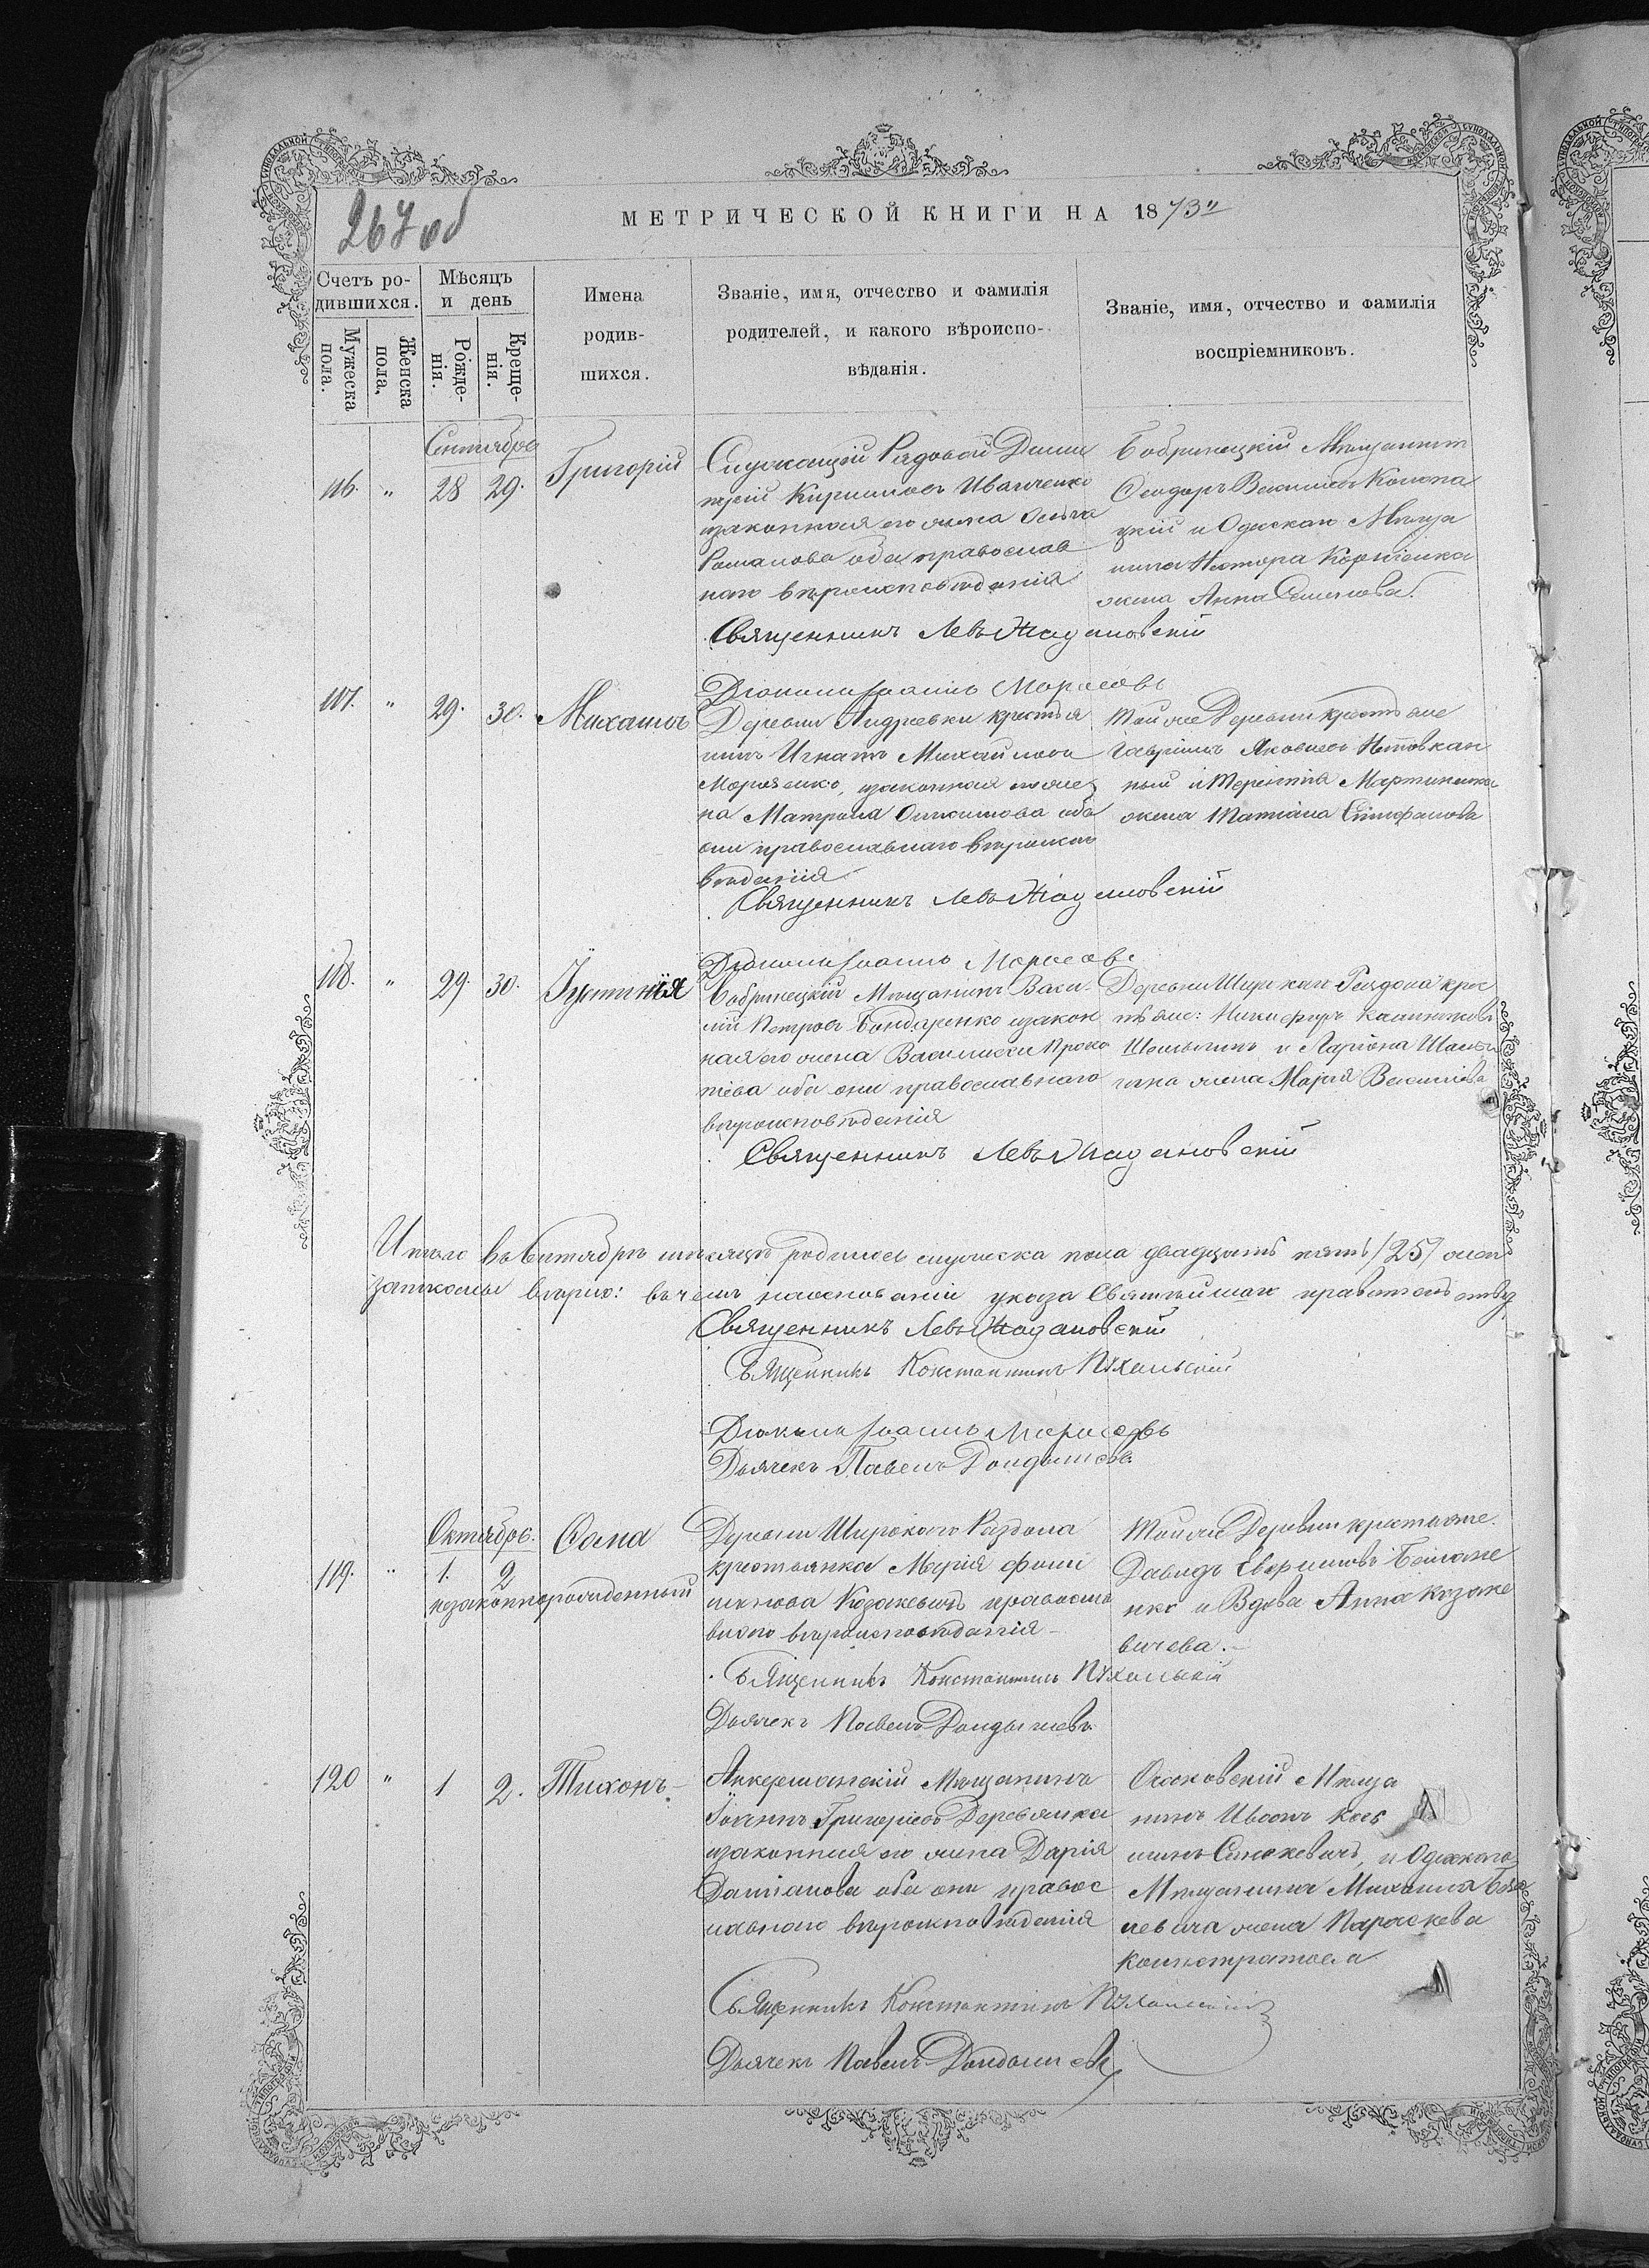 267 об
МЕТРИЧЕСКОЙ КНИГИ НА 1873й
Счетъ ро-
дившихся.
Мужеска
пола.
Женска
пола.
Мѣсяцъ
и день
Рожде-
нія.
Креще-
нія.
Имена
родив-
шихся.
Званіе, имя, отчество и фамилія
родителей, и какого вѣроиспо-
вѣданія.
Званіе, имя, отчество и фамилія
воспріемниковъ.
Сентября
116. " 28 29. Григорій
Служащій Рядовой Дими
трій Кириловъ Иванченко
изаконная его жена Ольга
Романова оба православ
наго вѣроисповѣданія
Бобринецкій Мѣщанинъ
Феодоръ Васильевъ
цкій и Одескаго Мѣща
нина Нестора Корніенка
жена Анна Семенова.
Священникъ Левъ
117. " 29. 30. Михаилъ
Діаконъ Іоаннъ Морозовъ
Деревни Андреевки крестья
нинъ Игнатъ Михайловъ
изаконная его же
на Матрона оба
они православнаго вѣроиспо
вѣданія
Той же Деревни крестьяне
Гавріилъ Яковлевъ
ный и Терентія Мартиненка
жена Татіана Стефанова
Священникъ Левъ
118. " 29. 30. Іустинія
Діаконъ Іоаннъ Морозовъ
Бобринецкій Мѣщанинъ Васи
лій Петровъ Бондаренко изакон
ная его жена Василиса Проко
піева оба они православнаго
вѣроисповѣданія
Деревни Широкаго Раздола крес
тьяне: Никифоръ
и Ларіона
жена Марія Василіева
Священникъ Левъ
Итого въ Сентябрѣ мѣсяцѣ родилось мужеска пола двадцать пять /25/
вѣрно: въ чемъ наоснованіи указа Святѣйшаго
Священникъ Левъ
Священникъ Константинъ
Діаконъ Іоаннъ Морозовъ
Дьячекъ Павелъ
Октября.
119. " 1. 2 Сава
незаконнорожденный
Деревни Широкаго Раздола
крестьянка Марія Фили
пова Козакевичъ православ
наго вѣроисповѣданія
Той же Деревни крестьяне
Давидъ
нко и Вдова Анна Козаке
вичева.
Священникъ Константинъ
Дьячекъ Павелъ
120 " 1 2. Тихонъ
Аккерманскій Мѣщанинъ
Іоаннъ Григорьевъ Деревянка
изаконная его жена Дарія
Даміанова оба они правос
лавнаго вѣроисповѣданія
Очаковскій Мѣща
нинъ
и Одескаго
Мѣщанина Михаила
левича жена Параскева
Священникъ Константинъ
Дьячекъ Павелъ